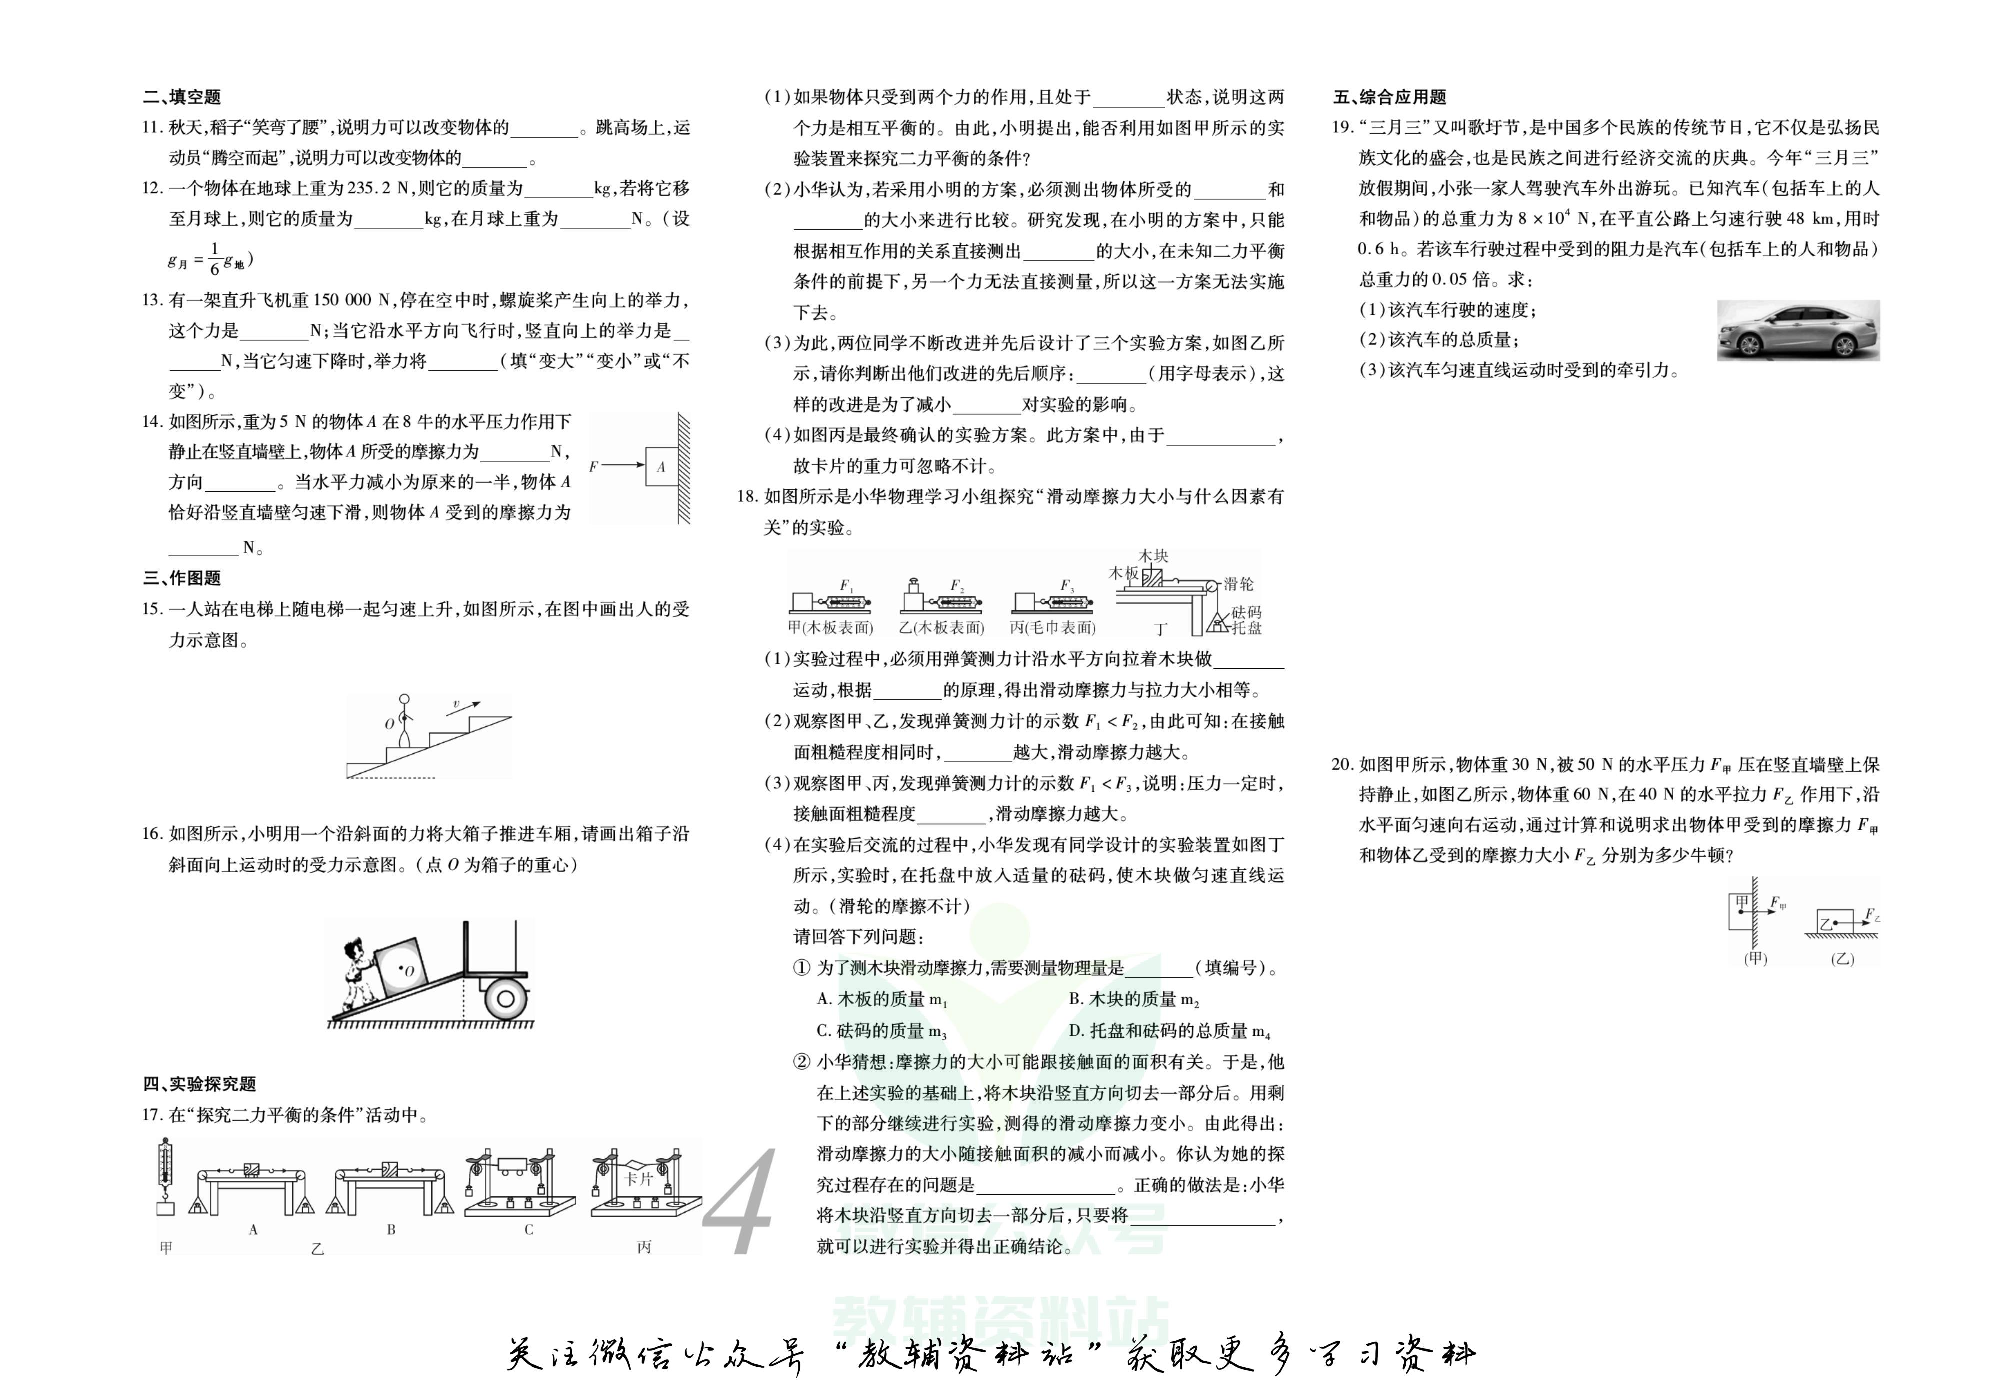 二、填空题
11. 秋天,稻子“笑弯了腰”,说明力可以改变物体的________。跳高场上,运
动员“腾空而起”,说明力可以改变物体的________。
12. 一个物体在地球上重为235.2 N,则它的质量为________kg,若将它移
至月球上,则它的质量为________kg,在月球上重为________N。(设
g月 = 1/6 g地)
13. 有一架直升飞机重150 000 N,停在空中时,螺旋桨产生向上的举力,
这个力是________N;当它沿水平方向飞行时,竖直向上的举力是__
______N,当它匀速下降时,举力将________(填“变大”“变小”或“不
变”)。
14. 如图所示,重为5 N 的物体 A 在8 牛的水平压力作用下
静止在竖直墙壁上,物体 A 所受的摩擦力为________N,
方向________。当水平力减小为原来的一半,物体 A
恰好沿竖直墙壁匀速下滑,则物体 A 受到的摩擦力为
________ N。
F A
三、作图题
15. 一人站在电梯上随电梯一起匀速上升,如图所示,在图中画出人的受
力示意图。
O v
16. 如图所示,小明用一个沿斜面的力将大箱子推进车厢,请画出箱子沿
斜面向上运动时的受力示意图。(点 O 为箱子的重心)
O
四、实验探究题
17. 在“探究二力平衡的条件”活动中。
卡片
A B C
甲 乙 丙
(1)如果物体只受到两个力的作用,且处于________状态,说明这两
个力是相互平衡的。由此,小明提出,能否利用如图甲所示的实
验装置来探究二力平衡的条件?
(2)小华认为,若采用小明的方案,必须测出物体所受的________和
________的大小来进行比较。研究发现,在小明的方案中,只能
根据相互作用的关系直接测出________的大小,在未知二力平衡
条件的前提下,另一个力无法直接测量,所以这一方案无法实施
下去。
(3)为此,两位同学不断改进并先后设计了三个实验方案,如图乙所
示,请你判断出他们改进的先后顺序:________(用字母表示),这
样的改进是为了减小________对实验的影响。
(4)如图丙是最终确认的实验方案。此方案中,由于____________,
故卡片的重力可忽略不计。
18. 如图所示是小华物理学习小组探究“滑动摩擦力大小与什么因素有
关”的实验。
木块
木板 滑轮
F1 F2 F3
砝码
托盘
甲(木板表面) 乙(木板表面) 丙(毛巾表面) 丁
(1)实验过程中,必须用弹簧测力计沿水平方向拉着木块做________
运动,根据________的原理,得出滑动摩擦力与拉力大小相等。
(2)观察图甲、乙,发现弹簧测力计的示数 F1 < F2,由此可知:在接触
面粗糙程度相同时,________越大,滑动摩擦力越大。
(3)观察图甲、丙,发现弹簧测力计的示数 F1 < F3,说明:压力一定时,
接触面粗糙程度________,滑动摩擦力越大。
(4)在实验后交流的过程中,小华发现有同学设计的实验装置如图丁
所示,实验时,在托盘中放入适量的砝码,使木块做匀速直线运
动。(滑轮的摩擦不计)
请回答下列问题:
① 为了测木块滑动摩擦力,需要测量物理量是________(填编号)。
A. 木板的质量 m1 B. 木块的质量 m2
C. 砝码的质量 m3 D. 托盘和砝码的总质量 m4
② 小华猜想:摩擦力的大小可能跟接触面的面积有关。于是,他
在上述实验的基础上,将木块沿竖直方向切去一部分后。用剩
下的部分继续进行实验,测得的滑动摩擦力变小。由此得出:
滑动摩擦力的大小随接触面积的减小而减小。你认为她的探
究过程存在的问题是________________。正确的做法是:小华
将木块沿竖直方向切去一部分后,只要将________________,
就可以进行实验并得出正确结论。
五、综合应用题
19. “三月三”又叫歌圩节,是中国多个民族的传统节日,它不仅是弘扬民
族文化的盛会,也是民族之间进行经济交流的庆典。今年“三月三”
放假期间,小张一家人驾驶汽车外出游玩。已知汽车(包括车上的人
和物品)的总重力为 8 × 10⁴ N,在平直公路上匀速行驶 48 km,用时
0.6 h。若该车行驶过程中受到的阻力是汽车(包括车上的人和物品)
总重力的0.05 倍。求:
(1)该汽车行驶的速度;
(2)该汽车的总质量;
(3)该汽车匀速直线运动时受到的牵引力。
20. 如图甲所示,物体重30 N,被50 N 的水平压力 F甲 压在竖直墙壁上保
持静止,如图乙所示,物体重60 N,在40 N 的水平拉力 F乙 作用下,沿
水平面匀速向右运动,通过计算和说明求出物体甲受到的摩擦力 F甲
和物体乙受到的摩擦力大小 F乙 分别为多少牛顿?
甲 F甲 乙 F乙
(甲) (乙)
4
微信公众号
教辅资料站
关注微信公众号“教辅资料站”获取更多学习资料